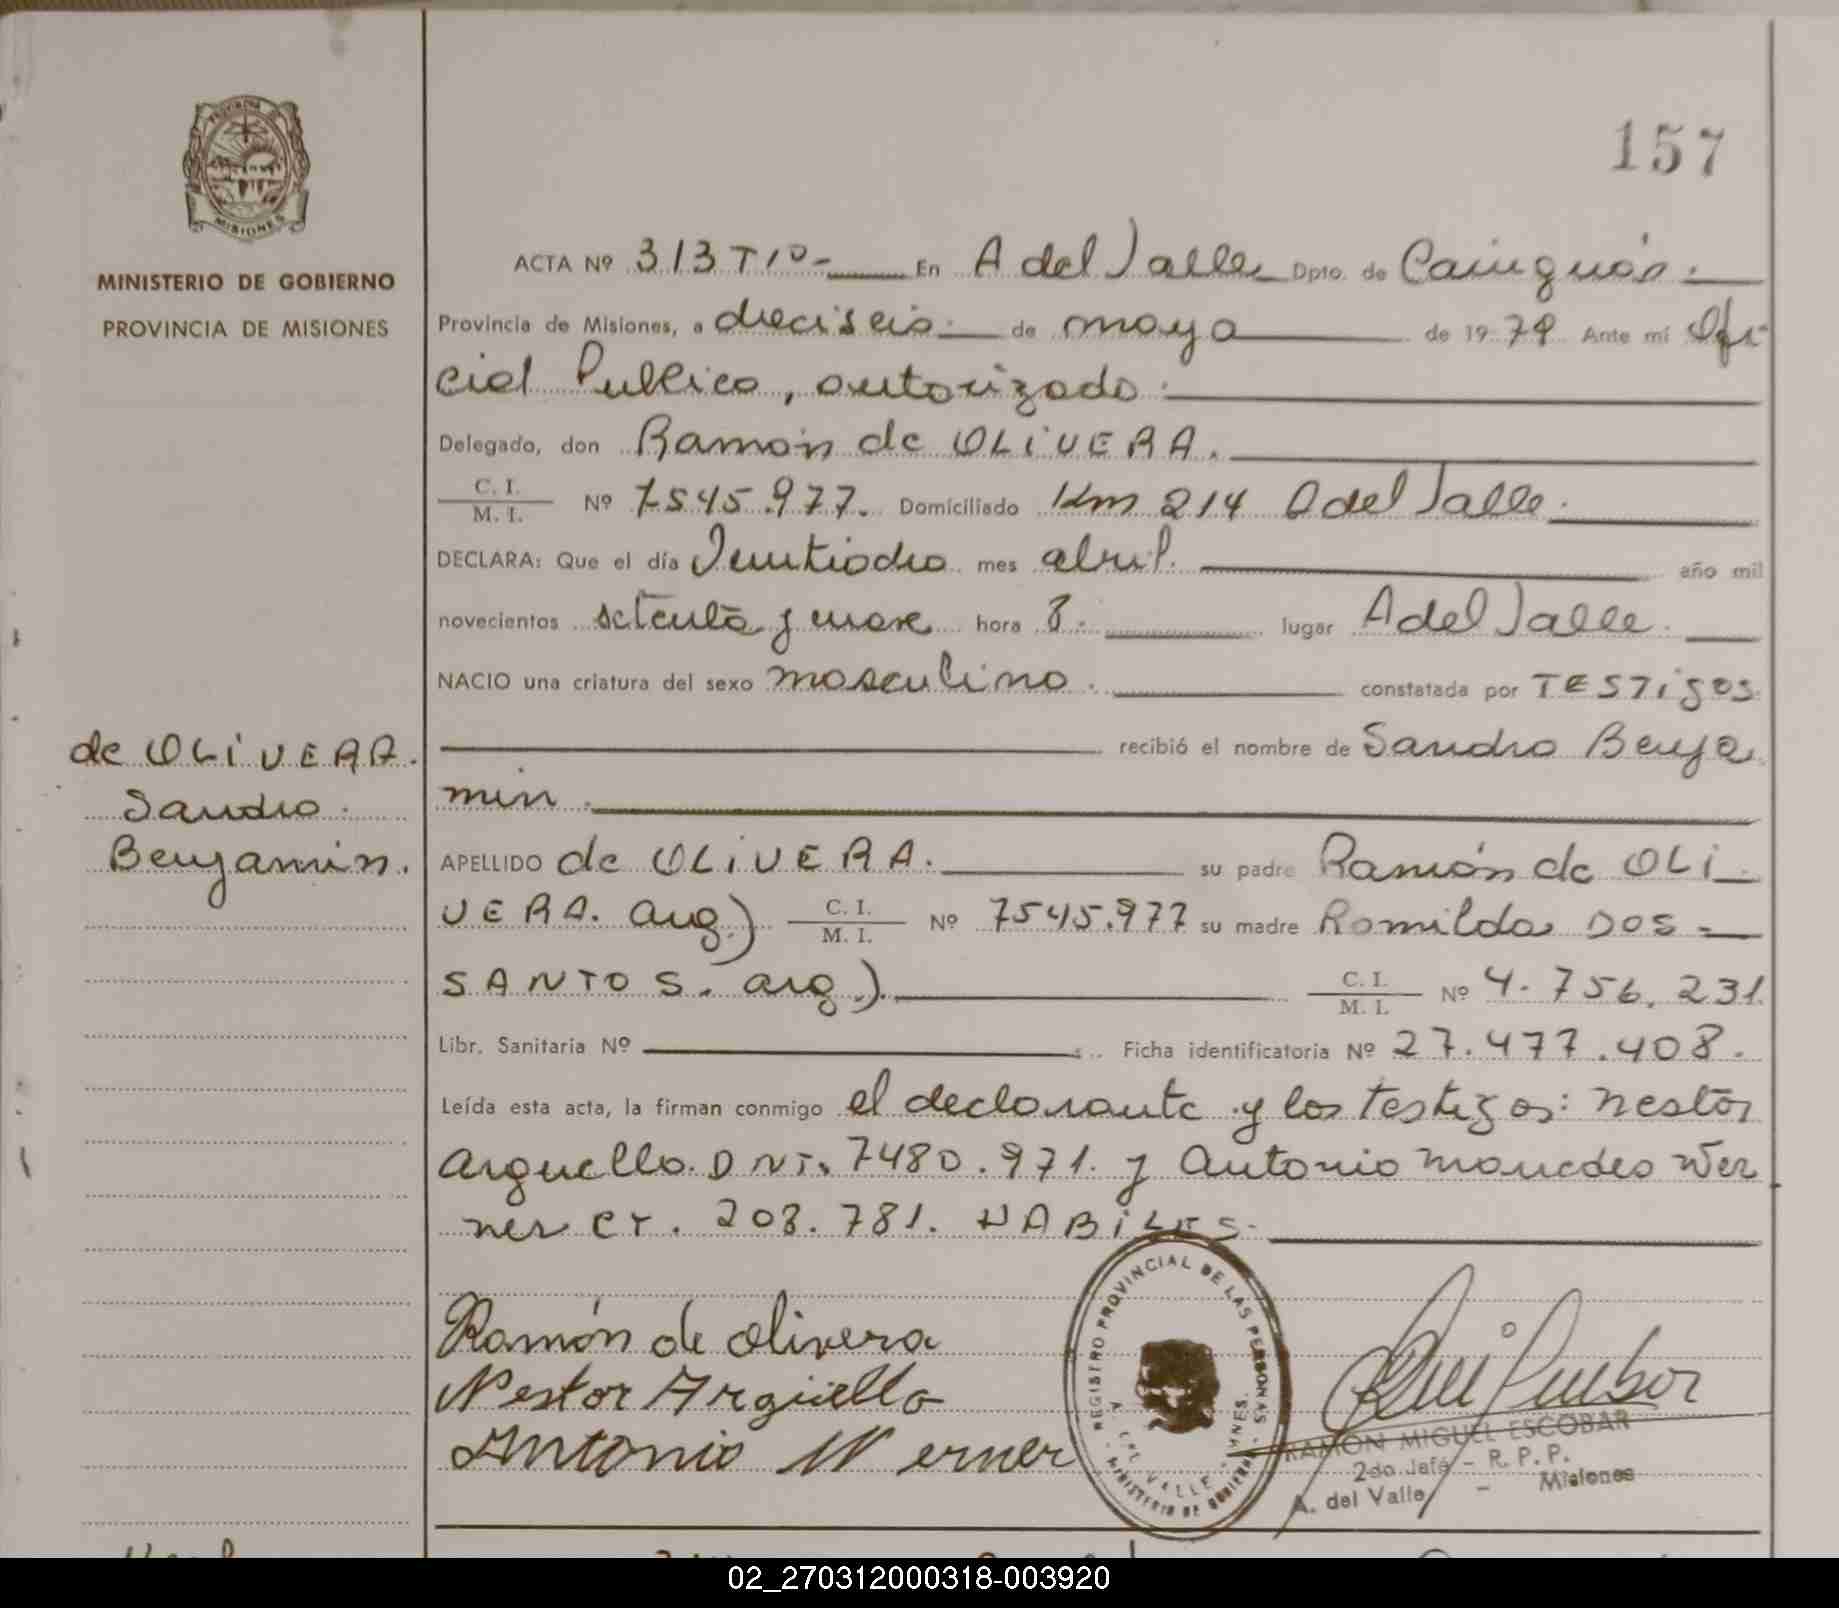 157
PROVINCIA DE
MISIONES
MINISTERIO DE GOBIERNO
PROVINCIA DE MISIONES
ACTA Nº 313 Tº- En A del Valle Dpto. de Cainguás.
Provincia de Misiones, a dieciseis. de mayo de 1979 Ante mí Ofi-
cial Publico, autorizado.
Delegado, don Ramón de OLIVERA.
C. I. / M. I. Nº 7545.977. Domiciliado Km 214 A del Valle.
DECLARA: Que el día Veintiocho mes abril. año mil
novecientos setenta y nueve hora 8. lugar A del Valle.
NACIO una criatura del sexo masculino. constatada por TESTigos
recibió el nombre de Sandro Benja
min.
de OLIVERA.
Sandro.
Benjamin.
APELLIDO de OLIVERA. su padre Ramón de OLI
VERA. arg.) C. I. / M. I. Nº 7545.977 su madre Romilda DOS
SANTOS. arg.). C. I. / M. I. Nº 4.756.231.
Libr. Sanitaria Nº Ficha identificatoria Nº 27.477.408.
Leída esta acta, la firman conmigo el declarante y los testigos: Nestor
Arguello. DNI. 7480.971. y Antonio Wer
ner CI. 208.781. HABILES.
Ramón de Olivera
Nestor Argüello
Antonio Werner
REGISTRO PROVINCIAL DE LAS PERSONAS
A. DEL VALLE - MNES.
MINISTERIO DE GOBIERNO
RAMON MIGUEL ESCOBAR
2do Jefe - R. P. P.
A. del Valle - Misiones
02_270312000318-003920